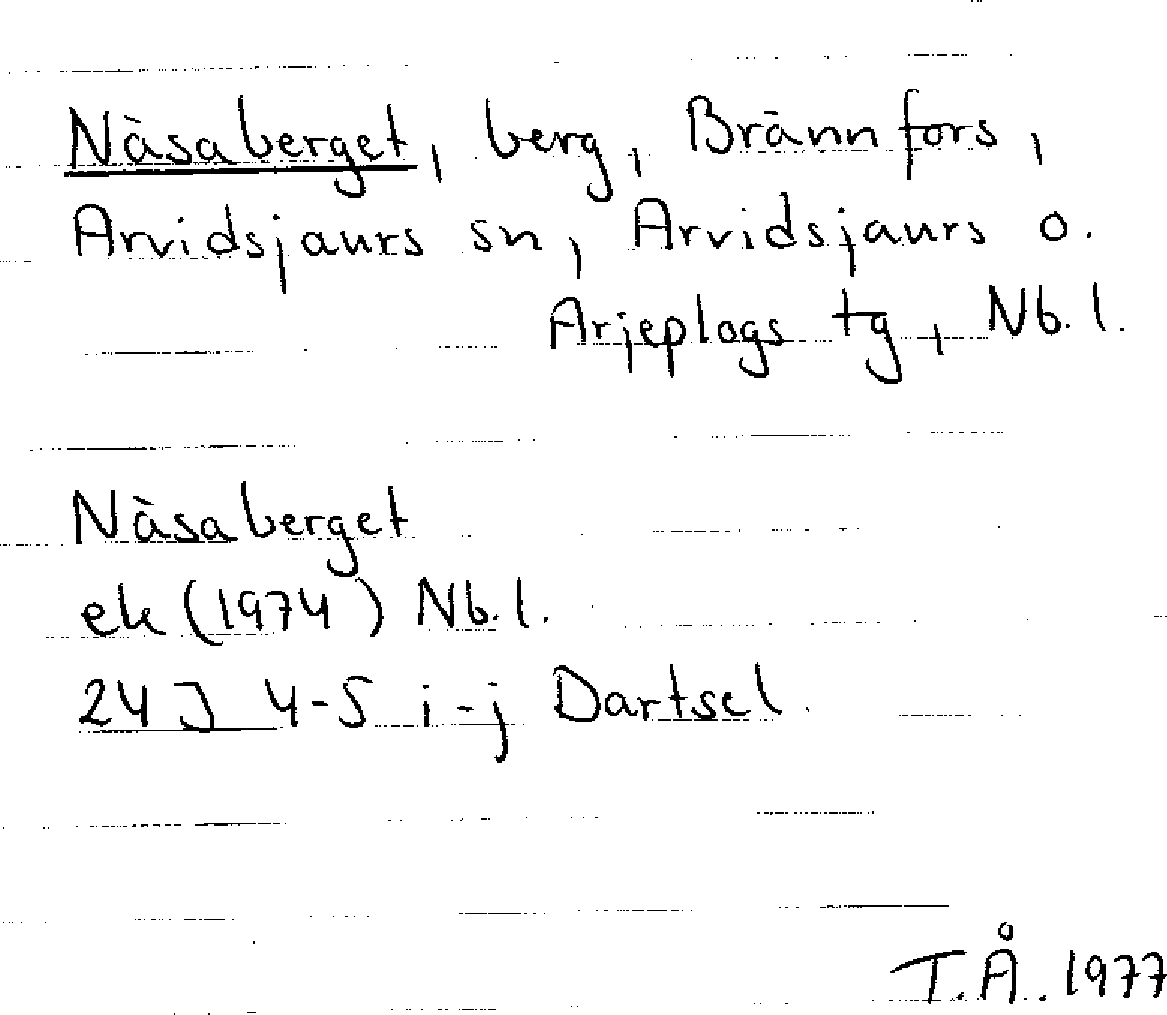 Näsaberget, berg, Brännfors,
Arvidsjaurs sn, Arvidsjaurs o.
Arjeplogs tg, Nb. l.
Näsaberget
ek (1974) Nb. l.
24 J 4-5 i-j Dartsel.
T.Å. 1977